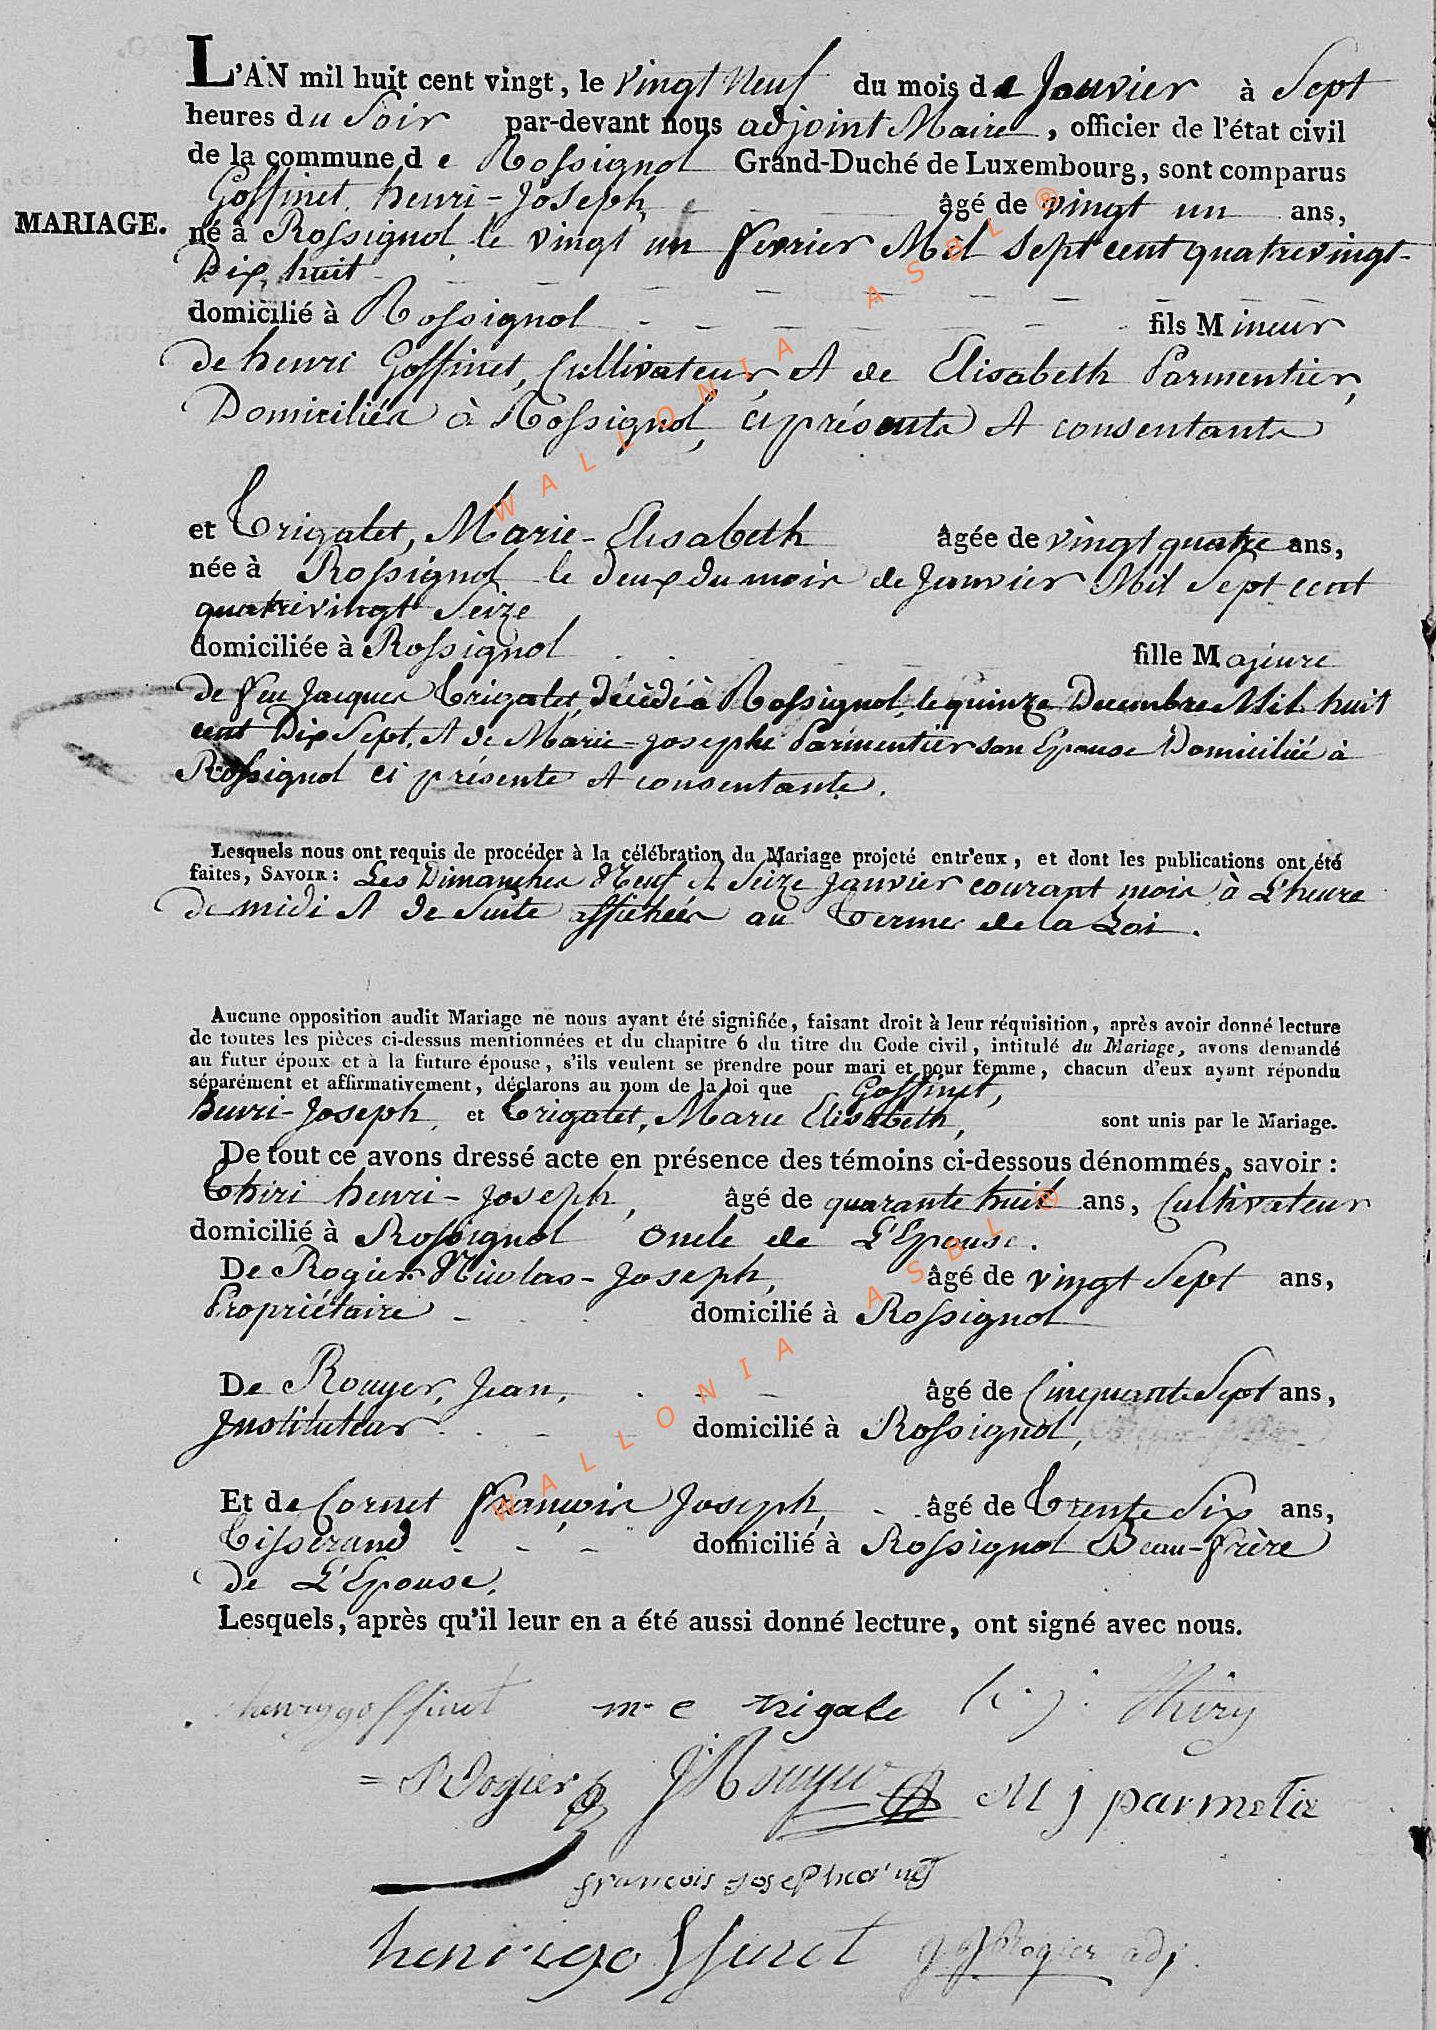 L'AN mil huit cent vingt, le vingt Neuf du mois de Janvier à Sept
heures du Soir par-devant nous adjoint Maire, officier de l'état civil
de la commune de Rossignol Grand-Duché de Luxembourg, sont comparus
Goffinet, henri-Joseph, âgé de vingt un ans,
MARIAGE.
né à Rossignol le vingt un fevrier Mil Sept cent quatrevingt-
Dix huit
domicilié à Rossignol fils Mineur
de henri Goffinet, Cultivateur, et de Elisabeth Parmentier,
Domiciliés à Rossignol, ci présents et consentants
et Trigalet, Marie-Elisabeth âgée de vingt quatre ans,
née à Rossignol le deux du mois de Janvier Mil Sept cent
quatrevingt Seize
domiciliée à Rossignol fille Majeure
de feu Jacques Trigalet, décédé à Rossignol, le quinze Decembre Mil huit
cent Dix Sept, et de Marie-josephe Parmentier son Epouse Domiciliée à
Rossignol ci présente et consentante.
Lesquels nous ont requis de procéder à la célébration du Mariage projeté entr'eux, et dont les publications ont été
faites, SAVOIR : Les Dimanches Neuf et Seize Janvier courant mois, à L'heure
de midi et de Suite affichées au Termes de la Loi.
Aucune opposition audit Mariage ne nous ayant été signifiée, faisant droit à leur réquisition, après avoir donné lecture
de toutes les pièces ci-dessus mentionnées et du chapitre 6 du titre du Code civil, intitulé du Mariage, avons demandé
au futur époux et à la future épouse, s'ils veulent se prendre pour mari et pour femme, chacun d'eux ayant répondu
séparément et affirmativement, déclarons au nom de la loi que Goffinet,
henri-Joseph, et Trigalet, Marie Elisabeth, sont unis par le Mariage.
De tout ce avons dressé acte en présence des témoins ci-dessous dénommés, savoir :
Thiri henri-Joseph, âgé de quarante huit ans, Cultivateur
domicilié à Rossignol oncle de L'Epouse.
De Rogier Nicolas-Joseph, âgé de vingt Sept ans,
Propriétaire domicilié à Rossignol
De Rouyer, Jean, âgé de Cinquante Sept ans,
Instituteur domicilié à Rossignol,
Et de Cornet François Joseph, âgé de Trente Six ans,
Tisserand domicilié à Rossignol Beau-frère
de L'Epouse.
Lesquels, après qu'il leur en a été aussi donné lecture, ont signé avec nous.
henry goffinet m e trigale h. j. thiry
NRogier JRouyer M j parmetie
francois joseph cornet
henri goffinet Rogier adj.
WALLONIA ASBL ®
WALLONIA ASBL ®